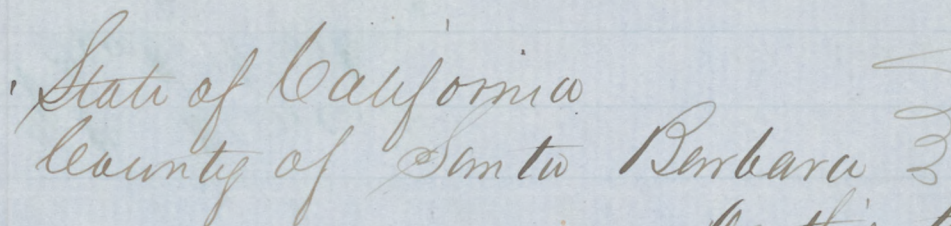 State of California
County of Santa Barbara